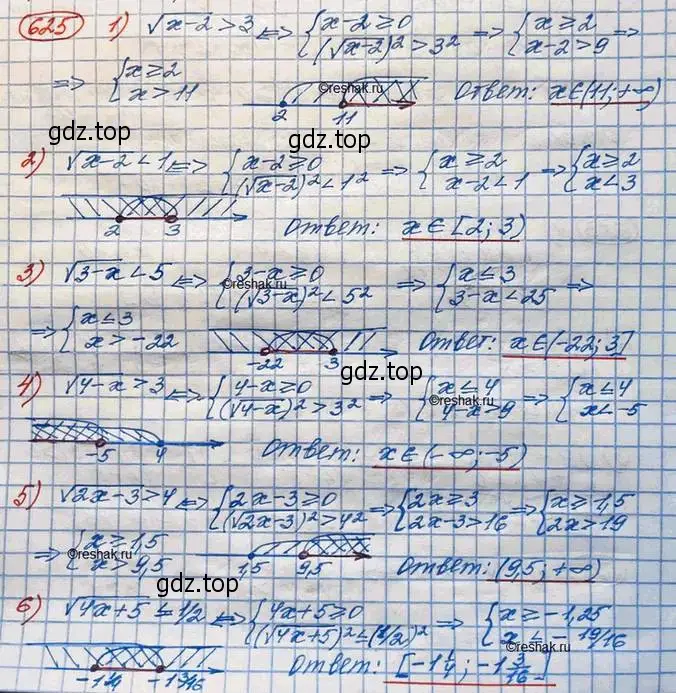 625 1) √x-2 > 3 <=> { x-2 ≥ 0 (√x-2)² > 3² => { x ≥ 2 x-2 > 9 =>
=> { x ≥ 2 x > 11 2 11 ©reshak.ru Ответ: x∈(11; +∞)
gdz.top gdz.top
2) √x-2 < 1 <=> { x-2 ≥ 0 (√x-2)² < 1² => { x ≥ 2 x-2 < 1 => { x ≥ 2 x < 3
2 3 Ответ: x∈[2; 3)
3) √3-x < 5 <=> { 3-x ≥ 0 (√3-x)² < 5² => { x ≤ 3 3-x < 25 =>
©reshak.ru
=> { x ≤ 3 x > -22 -22 3 Ответ: x∈(-22; 3]
gdz.top
4) √4-x > 3 <=> { 4-x ≥ 0 (√4-x)² > 3² => { x ≤ 4 4-x > 9 => { x ≤ 4 x < -5
©reshak.ru
-5 4 Ответ: x∈(-∞; -5)
gdz.top
5) √2x-3 > 4 <=> { 2x-3 ≥ 0 (√2x-3)² > 4² => { 2x ≥ 3 2x-3 > 16 => { x ≥ 1,5 2x > 19
=> { x ≥ 1,5 x > 9,5 ©reshak.ru 1,5 9,5 Ответ: (9,5; +∞)
gdz.top
6) √4x+5 ≤ 1/2 <=> { 4x+5 ≥ 0 (√4x+5)² ≤ (1/2)² => { x ≥ -1,25 x ≤ - 19/16
-1 1/4 -1 3/16 Ответ: [-1 1/4; -1 3/16]
gdz.top